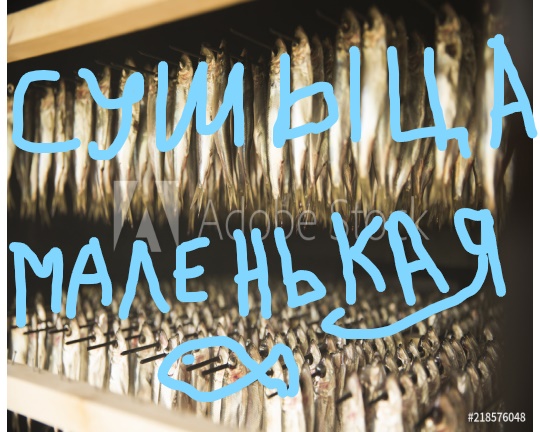 СУШЫЦА
Adobe Stock
МАЛЕНЬКАЯ
#218576048